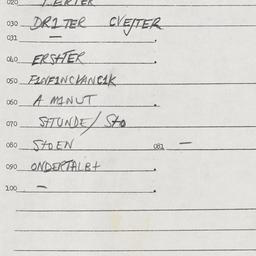 020 TERTER
030 DRITER CVEJTER
031 —
040 ERSHTER
050 FINFINCVANCIK
060 A MINUT
070 SHTUNDE/ SHO
080 SHOEN 081 —
090 ONDERTALBT
100 —